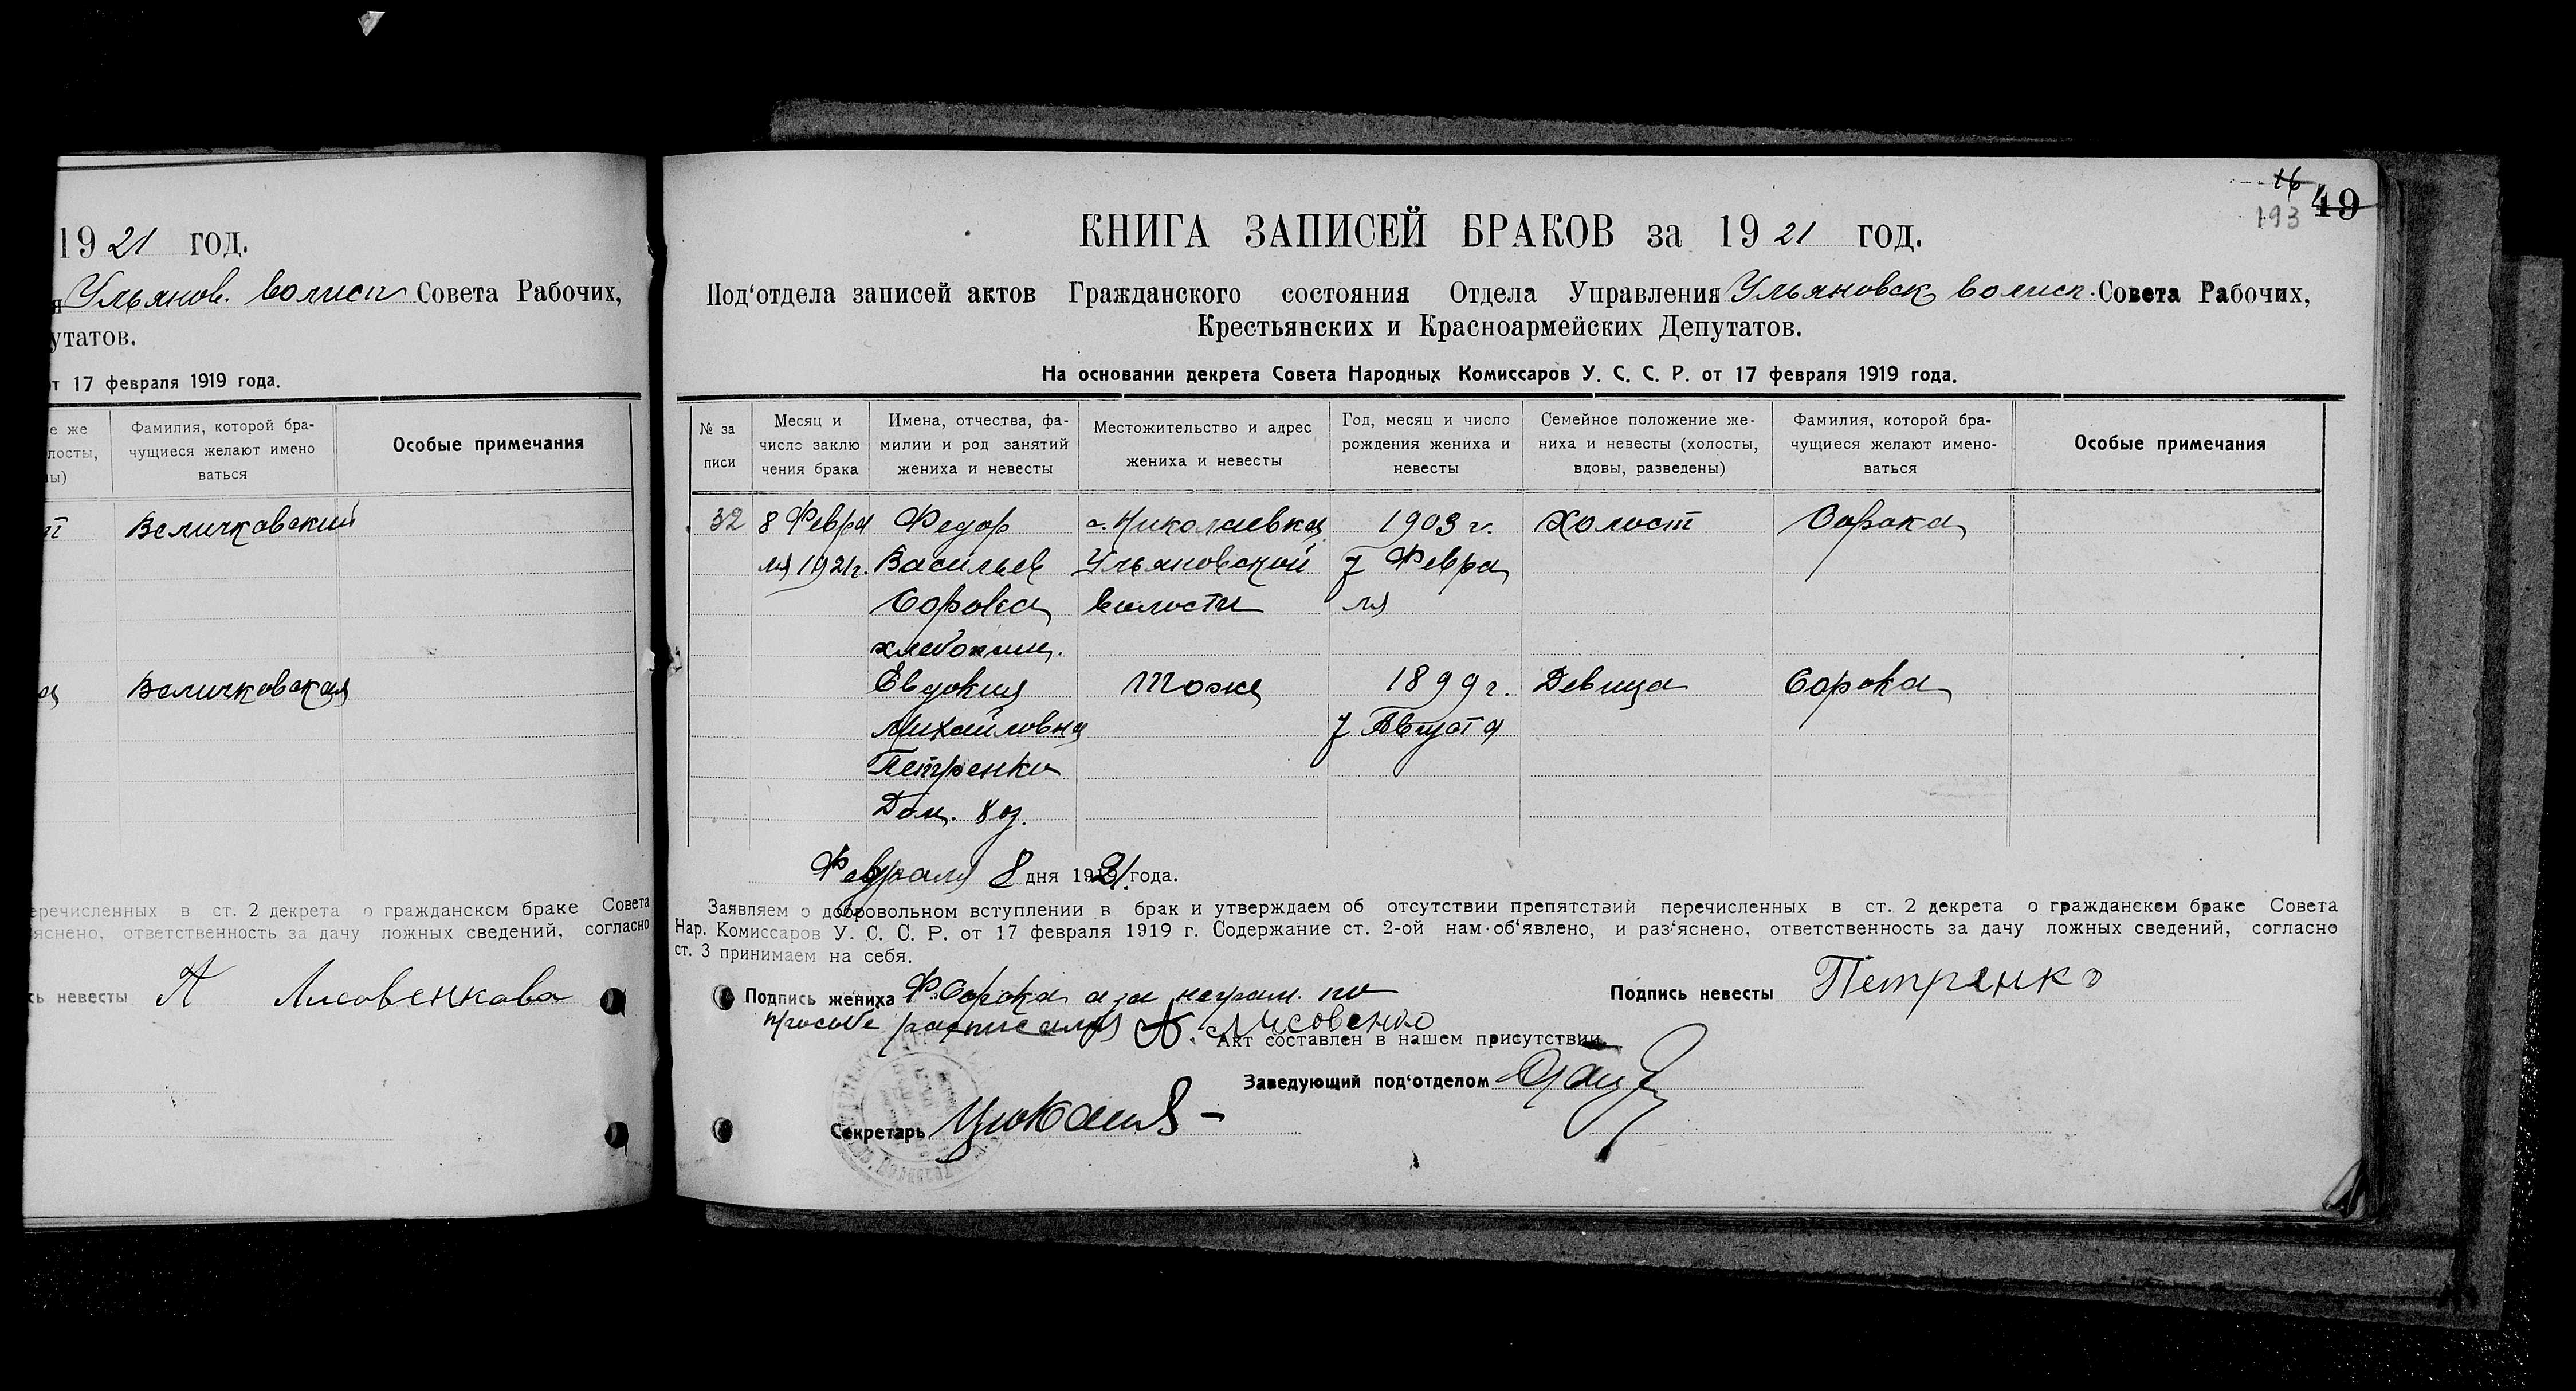 1921 год.
Ульянов. волисп Совета Рабочих,
утатов.
от 17 февраля 1919 года.
е же
лосты,
ны)
Фамилия, которой бра-
чущиеся желают имено
ваться
Особые примечания
Величковский
Величковская
еречисленных в ст. 2 декрета о гражданском браке Совета
яснено, ответственность за дачу ложных сведений, согласно
сь невесты А Лисовенкова
16
193 49
КНИГА ЗАПИСЕЙ БРАКОВ за 1921 год.
Под‘отдела записей актов Гражданского состояния Отдела Управления Ульяновск волисп. Совета Рабочих,
Крестьянских и Красноармейских Депутатов.
На основании декрета Совета Народных Комиссаров У. С. С. Р. от 17 февраля 1919 года.
№ за
писи
Месяц и
число заклю
чения брака
Имена, отчества, фа-
милии и род занятий
жениха и невесты
Местожительство и адрес
жениха и невесты
Год, месяц и число
рождения жениха и
невесты
Семейное положение же-
ниха и невесты (холосты,
вдовы, разведены)
Фамилия, которой бра-
чущиеся желают имено-
ваться
Особые примечания
32 8 Февра Федор с. Николаевка 1903 г. Холост Сорока
ля 1921г. Васильев Ульяновской 7 Февра
Сорока волости ля
хлебопаш.
Евдокия Тоже 1899 г. Девица Сорока
Михайловна 7 Августа
Петренко
Дом. хоз.
Февраля 8 дня 1921 года.
Заявляем о добровольном вступлении в брак и утверждаем об отсутствии препятствий перечисленных в ст. 2 декрета о гражданском браке Совета
Нар. Комиссаров У. С. С. Р. от 17 февраля 1919 г. Содержание ст. 2-ой нам об‘явлено, и раз‘яснено, ответственность за дачу ложных сведений, согласно
ст. 3 принимаем на себя.
Подпись жениха Ф. Сорока а за неграм. по
просьбе расписался А. Лисовенко
Подпись невесты Петренко
Акт составлен в нашем присутствии
Заведующий под‘отделом
Секретарь